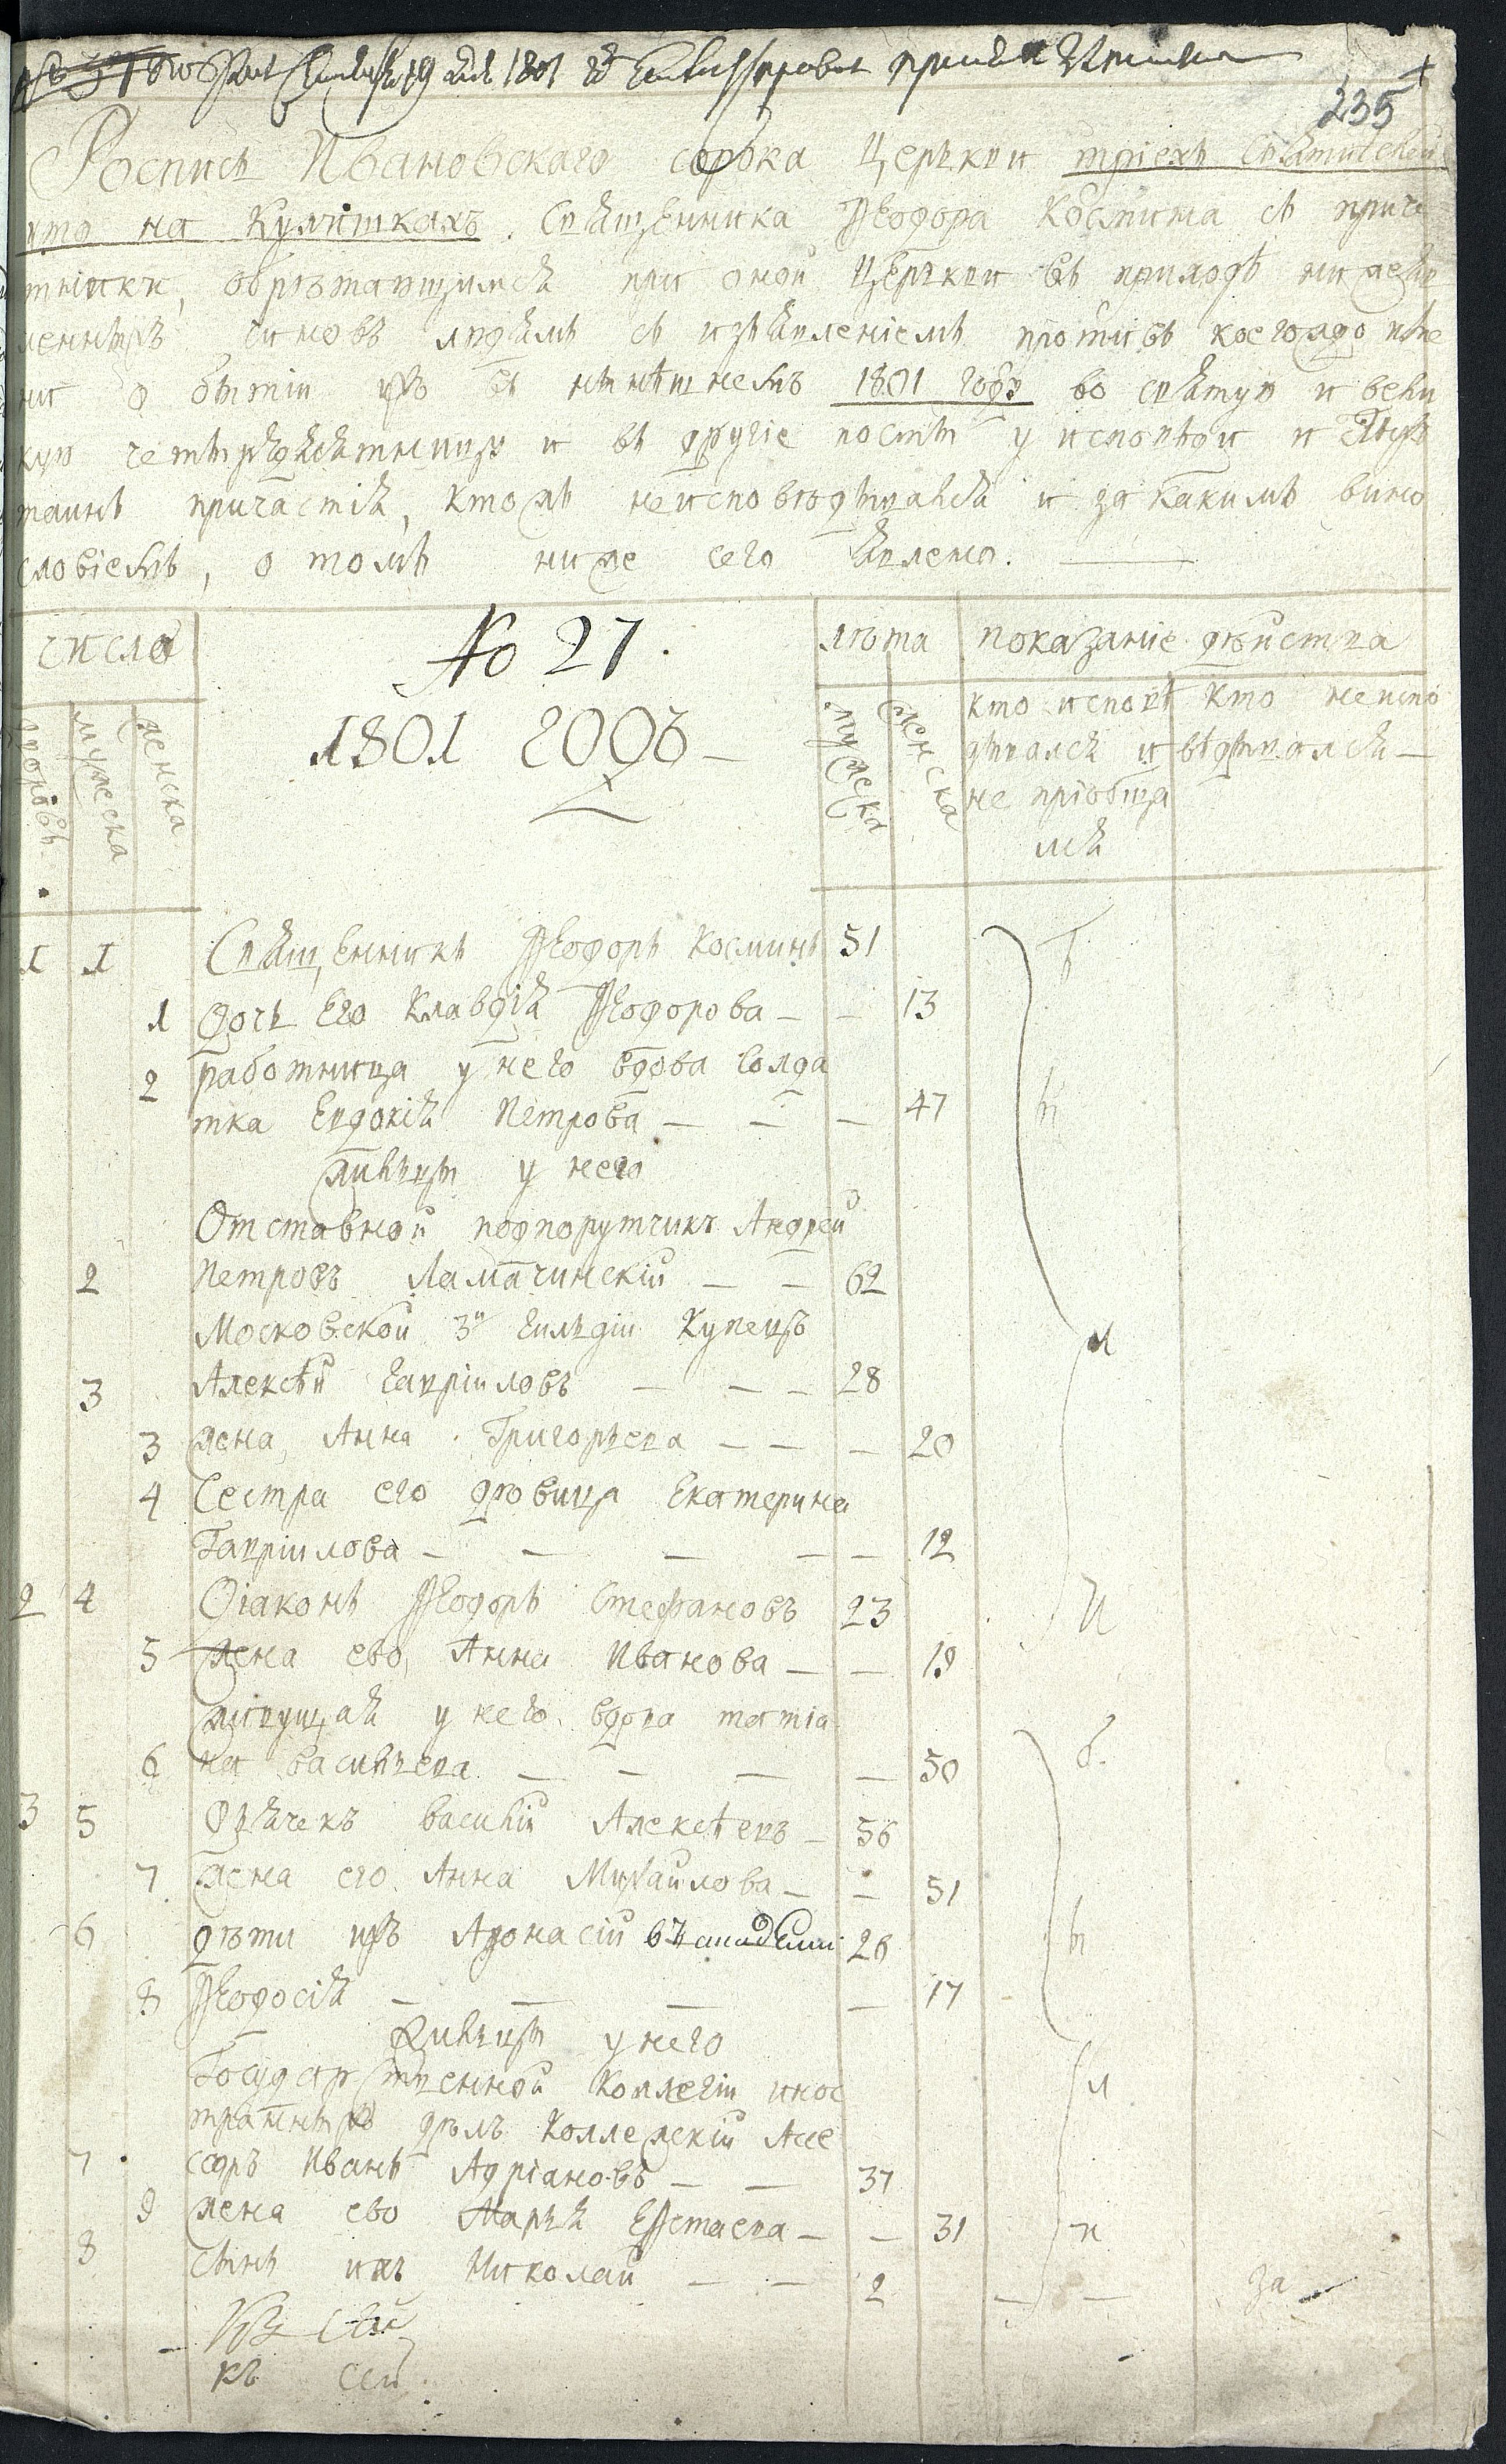 235
Роспись Ивановскаго сорока Церькви трiехъ Святителей
что на Кулишкахъ. Священника Ѳеодора Космина съ приче
тники, обрѣтающимся при оной Церькви въ приходѣ нижеяв
леннымъ чиновъ людямъ съ изъявленiемъ противъ коегождо име
ни о бытiи ихъ въ нынѣшнемъ 1801 годѣ во святую и вели
кую четыредесятницу и въ другiе посты у исповѣди и Стыхъ
таинъ причастiя, ктожъ неисповѣдывался и за какимъ вино
словiемъ, о томъ ниже сего явлено.
число
No 27.
лѣта
показанiе дѣйства
дворовъ.
мужеска
женска
1801 годъ
мужеска
женска
кто исповѣ
дывался и
не прiобща
лся
кто неиспо
вѣдывался
1 1 Священникъ Ѳеодоръ Косминъ 51
1 Дочь Его Клавдiя Ѳеодорова 13
2 работница у него вдова солда
тка Евдокiя Петрова 47
живутъ у него
Отставной подпорутчикъ Андрей
2 Петровъ Ламачинскiй 62
Московской 3й гильдiи Купецъ
3 Алексѣй Гаврiиловъ 28
3 жена, Анна Григорьева 20
4 Сестра его дѣвица Екатерина
Гаврiилова 12
2 4 Дiаконъ Ѳеодоръ Стефановъ 23
5 жена ево, Анна Иванова 19
живущая у него вдова татiа
6 на васильева 50
3 5 Дьячекъ василiй Алексѣевъ 56
7 жена его Анна Михайлова 51
6 дѣти ихъ Аѳонасiй 26
8 Ѳеодосiя 17
Живутъ у него
Государственной Коллегiи инос
транныхъ дѣлъ Коллежскiй Асе
7 соръ Иванъ Адрiановъ 37
9 жена ево Марья 31
8 сынъ ихъ Николай 2